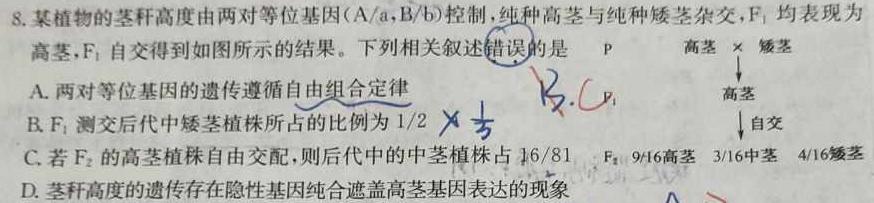 8. 某植物的茎秆高度由两对等位基因(A/a,B/b)控制,纯种高茎与纯种矮茎杂交,F₁ 均表现为
高茎,F₁ 自交得到如图所示的结果。下列相关叙述错误的是
A. 两对等位基因的遗传遵循自由组合定律
B. F₁ 测交后代中矮茎植株所占的比例为 1/2
C. 若 F₂ 的高茎植株自由交配,则后代中的中茎植株占 16/81
D. 茎秆高度的遗传存在隐性基因纯合遮盖高茎基因表达的现象
P 高茎 × 矮茎
F₁ 高茎
自交
F₂ 9/16高茎 3/16中茎 4/16矮茎
B.C